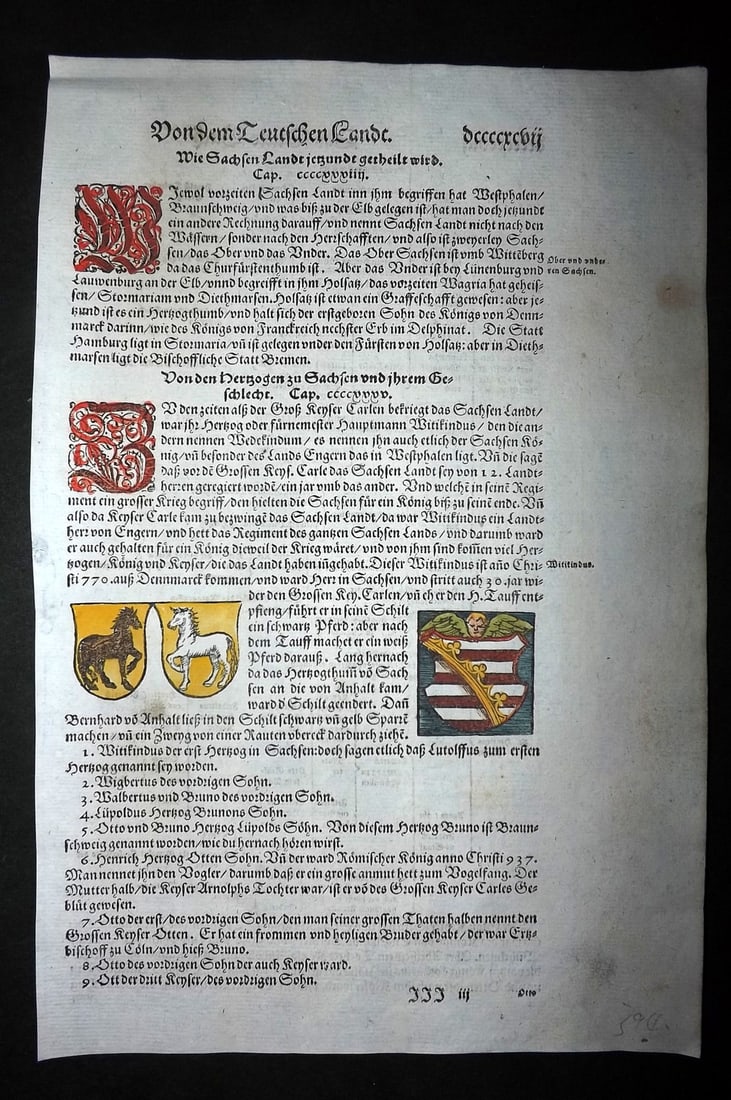 Von dem Teutschen Landt. dccccxcvij
Wie Sachsen Landt jetzundt getheilt wird.
Cap. ccccxxxiiij.
WJewol vorzeiten Sachsen Landt inn jhm begriffen hat Westphalen/
Braunschweig/vnd was biß zu der Elb gelegen ist/hat man doch jetzundt
ein andere Rechnung darauff/vnd nennt Sachsen Landt nicht nach den
Wässern/sonder nach den Herrschafften/vnd also ist zweyerley Sach-
sen/das Ober vnd das Vnder. Das Ober Sachsen ist vmb Wittēberg
Ober vnd vnde-
ren Sachsen.
da das Churfürstenthumb ist. Aber das Vnder ist bey Lünenburg vnd
Lauwenburg an der Elb/vnnd begreifft in jhm Holsatz/das vorzeiten Wagria hat geheis-
sen/Stormariam vnd Diethmarsen. Holsatz ist etwan ein Graffeschafft gewesen: aber je-
tzund ist es ein Hertzogthumb/vnd halt sich der erstgeboren Sohn des Königs von Denn-
marck darinn/wie des Königs von Franckreich nechster Erb im Delphinat. Die Statt
Hamburg ligt in Stormaria/vñ ist gelegen vnder den Fürsten von Holsatz: aber in Dieth-
marsen ligt die Bischoffliche Statt Bremen.
Von den Hertzogen zu Sachsen vnd jhrem Ge-
schlecht. Cap. ccccxxxv.
ZV den zeiten alß der Groß Keyser Carlen bekriegt das Sachsen Landt/
war jhr Hertzog oder fürnemester Hauptmann Witikindus/den die an-
dern nennen Wedekindum/es nennen jhn auch etlich der Sachsen Kö-
nig/vñ besonder des Lands Engern das in Westphalen ligt. Vñ die sagē
daß vor dē Grossen Keys. Carle das Sachsen Landt sey von 12. Landt-
herren geregiert wordē/ein jar vmb das ander. Vnd welchē in seinē Regi-
ment ein grosser Krieg begriff/den hielten die Sachsen für ein König biß zu seinē ende. Vñ
also da Keyser Carle kam zu bezwingē das Sachsen Landt/da war Witikindus ein Landt-
herr von Engern/vnd hett das Regiment des gantzen Sachsen Lands/vnd darumb ward
er auch gehalten für ein König dieweil der Krieg wäret/vnd von jhm sind kom̄en viel Her-
tzogen/König vnd Keyser/die das Landt haben iñgehabt. Dieser Witikindus ist año Chri-
Witikindus.
sti 770. auß Dennmarck kommen/vnd ward Herr in Sachsen/vnd stritt auch 30. jar wi-
der den Grossen Key. Carlen/vñ eh er den H. Tauff ent-
pfieng/führt er in seinē Schilt
ein schwartz Pferd: aber nach
dem Tauff machet er ein weiß
Pferd darauß. Lang hernach
da das Hertzogthum̄ vō Sach
sen an die von Anhalt kam/
ward d' Schilt geendert. Dañ
Bernhard vō Anhalt ließ in den Schilt schwartz vñ gelb Sparrē
machen/vñ ein Zweyg von einer Rauten vbereck dardurch ziehē.
1. Witikindus der erst Hertzog in Sachsen: doch sagen etlich daß Lutolffus zum ersten
Hertzog genannt sey worden.
2. Wigbertus des vordrigen Sohn.
3. Walbertus vnd Bruno des vordrigen Sohn.
4. Lüpoldus Hertzog Brunons Sohn.
5. Otto vnd Bruno Hertzog Lüpolds Söhn. Von diesem Hertzog Bruno ist Braun-
schweig genannt worden/wie du hernach hören wirst.
6. Henrich Hertzog Otten Sohn. Vñ der ward Römischer König anno Christi 937.
Man nennet jhn den Vogler/darumb daß er ein grosse anmut hett zum Vogelfang. Der
Mutter halb/die Keyser Arnolphs Tochter war/ist er vō des Grossen Keyser Carles Ge-
blüt gewesen.
7. Otto der erst/des vordrigen Sohn/den man seiner grossen Thaten halben nennt den
Grossen Keyser Otten. Er hat ein frommen vnd heyligen Bruder gehabt/der war Ertz-
bischoff zu Cöln/vnd hieß Bruno.
8. Otto des vordrigen Sohn der auch Keyser ward.
9. Ott der dritt Keyser/des vordrigen Sohn.
JJJ iij Otto